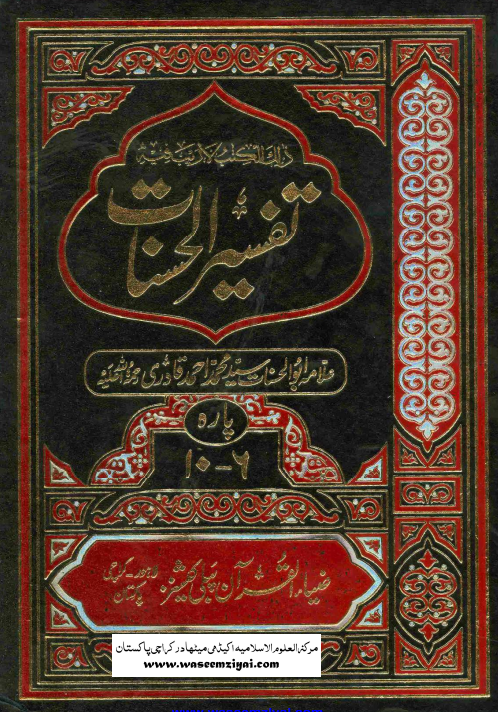 ذالك الكتب لاريب فيه
تفسیر الحسنات
علامہ ابوالحسنات سید محمد احمد قادری رحمۃ اللہ علیہ
پارہ
۶-۱۰
ضیاء القرآن پبلی کیشنز لاہور-کراچی
پاکستان
مرکز العلوم الاسلامیہ اکیڈمی میٹھادر کراچی پاکستان
www.waseemziyai.com